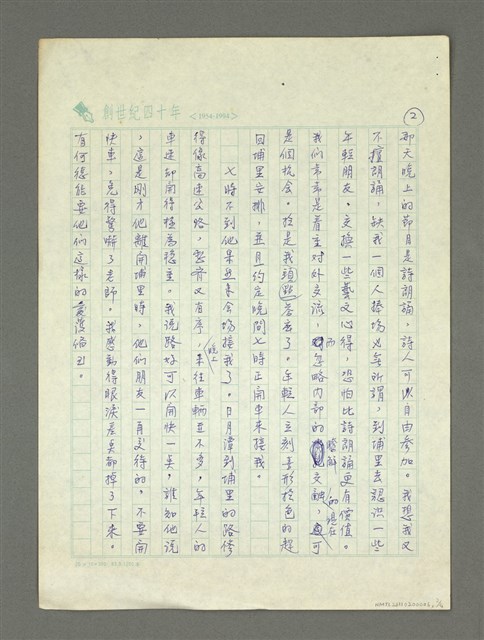 創世紀四十年 <1954-1994>
2
那天晚上的節目是詩朗誦,詩人可以自由參加。我想我又
不擅朗誦,缺我一個人捧場也無所謂,到埔里去認識一些
年輕朋友。交換一些藝文心得,恐怕比詩朗誦更有價值。
我們常常是着重對外交流,而忽略內部的瞭解交融,現在可
是個机会。於是我頭點差丟了。年輕人立刻喜形於色的趕
回埔里安排,並且約定晚間七時正開車來接我。
七時不到他果然來会場接我了。日月潭到埔里的路修
得像高速公路,寬又有序,晚上來往車輛並不多,年輕人的
車速卻開得極為穩重。我說路好可以開快一奌,誰知他說
,這是剛才他離開埔里時,他們朋友一再交待的,不要開
快車,免得驚嚇了老師。我感動得眼淚差奌都掉了下來。
有何德能要他們這樣的愛護倍至。